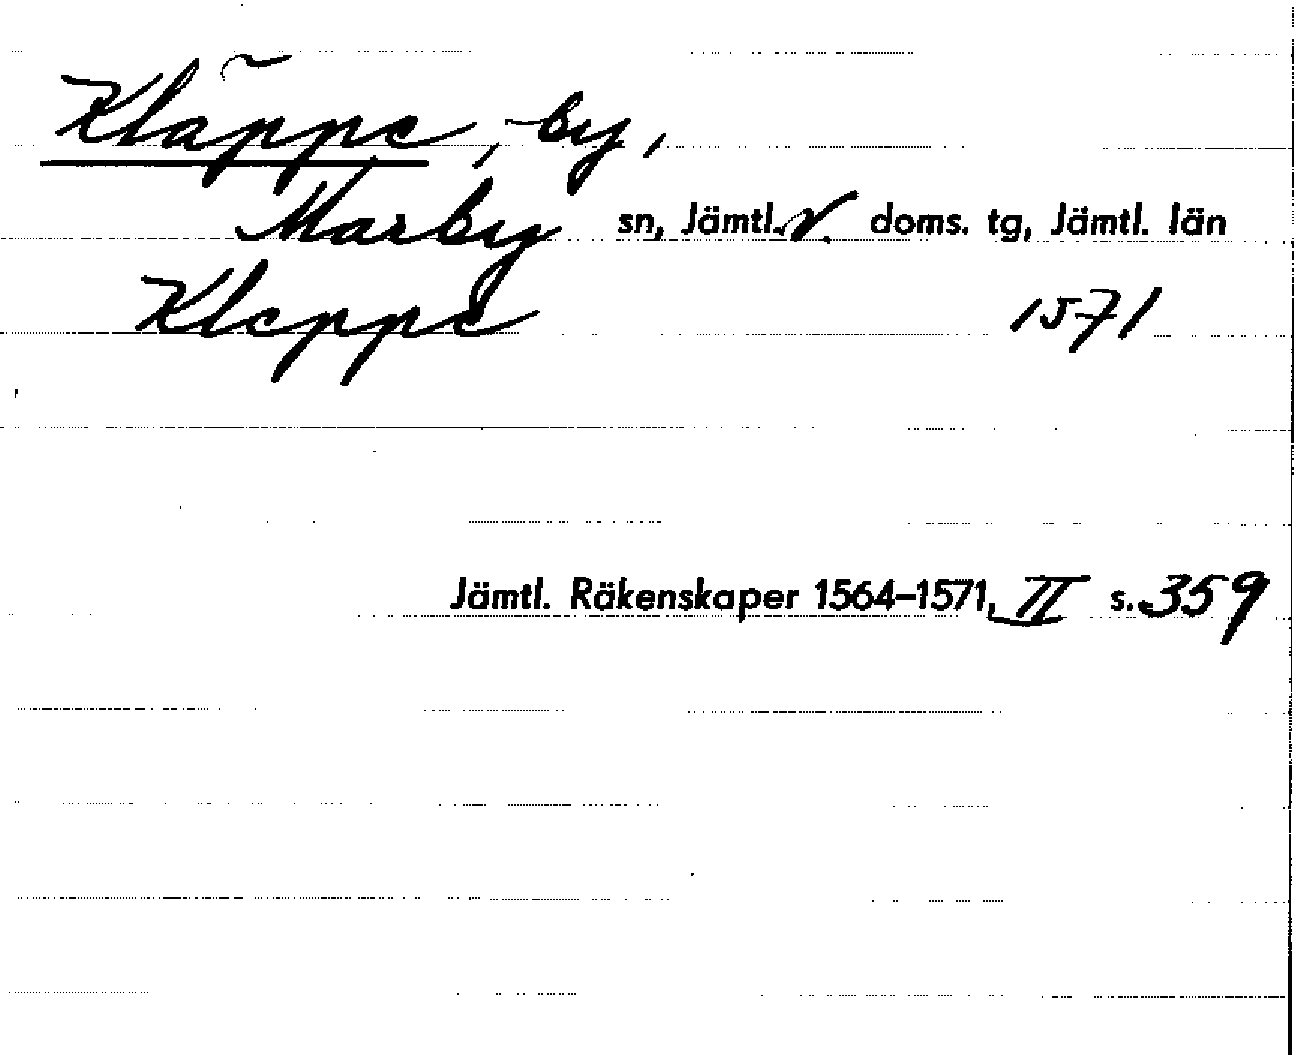 Kläppe, by,
Marby sn, Jämtl. V. doms. tg, Jämtl. län
Kleppe 1571
Jämtl. Räkenskaper 1564–1571, II s. 359